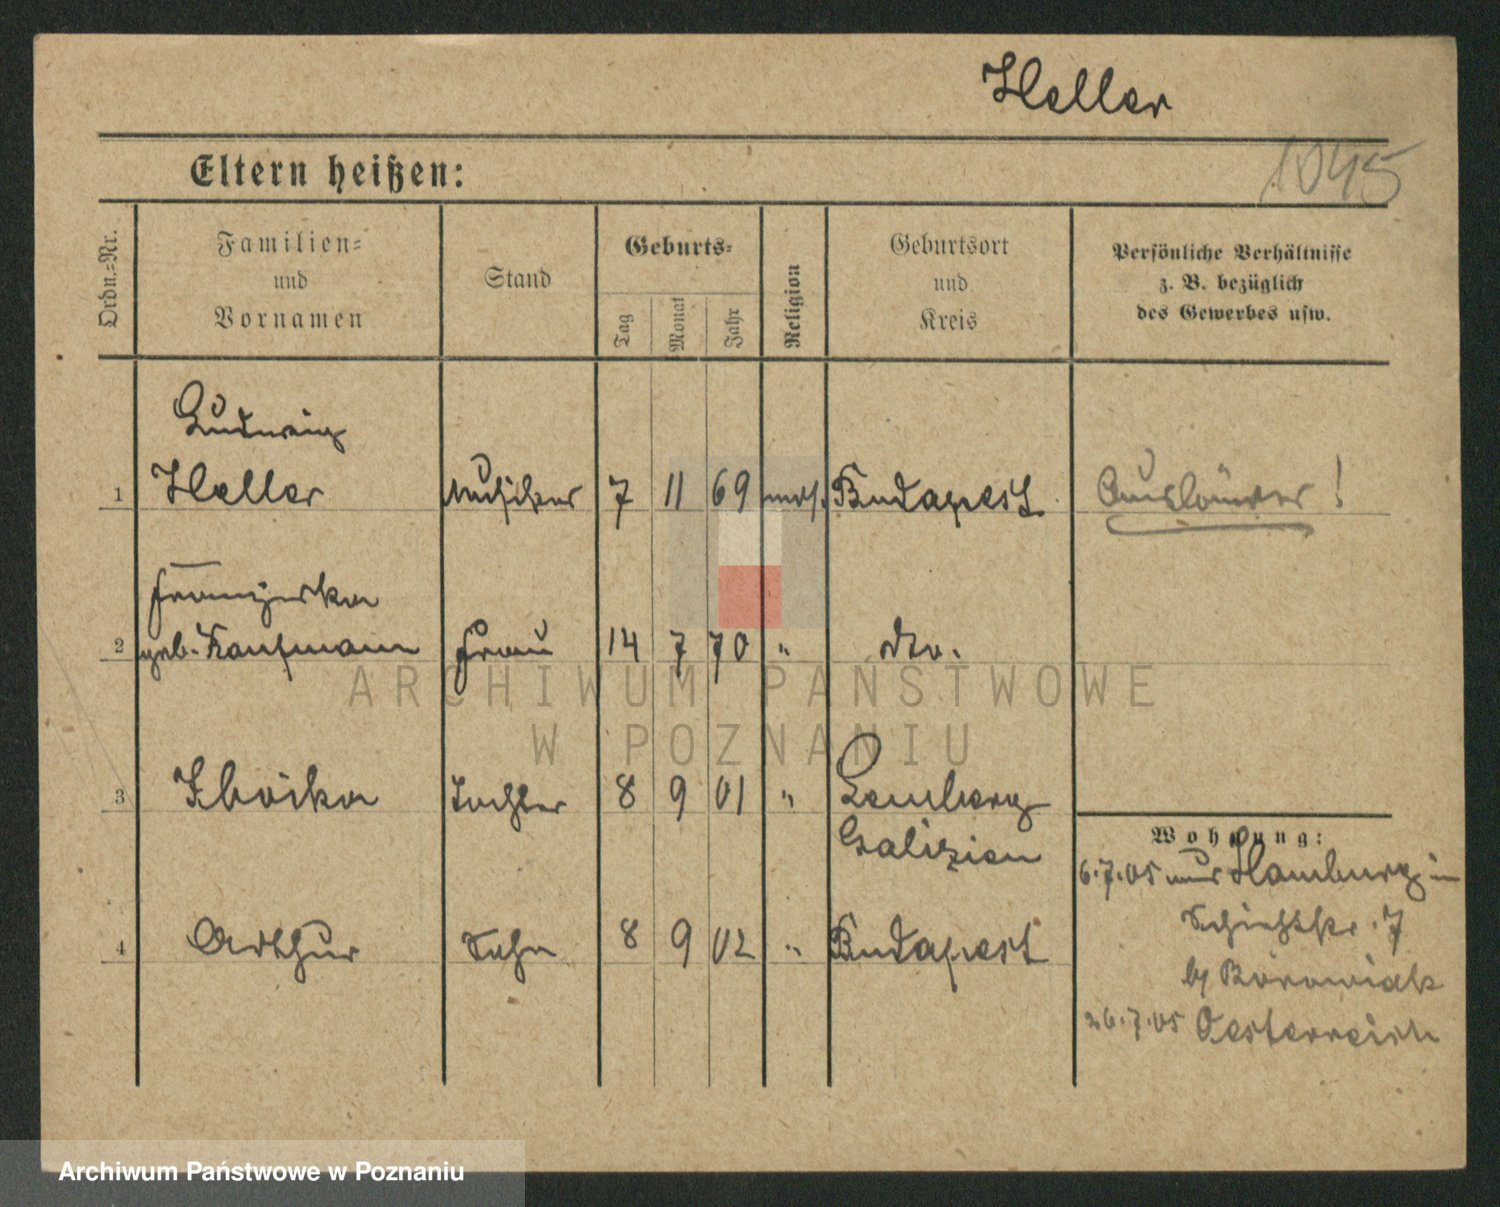 Heller
1045
Eltern heißen:
Ordn.-Nr.
Familien-
und
Vornamen
Stand
Geburts-
Tag
Monat
Jahr
Religion
Geburtsort
und
Kreis
Persönliche Verhältnisse
z. B. bezüglich
des Gewerbes usw.
Ludwig
1 Heller Musiker 7 11 69 mos. Budapest Ausländer!
Franziska
2 geb. Kaufmann Frau 14 7 70 " dto.
3 Tochter 8 9 01 " Lemberg
Galizien
4 Arthur Sohn 8 9 02 " Budapest
Wohnung:
6.7.05 aus Hamburg in
7
Borowiak
26.7.05 Oesterreich
ARCHIWUM PAŃSTWOWE
W POZNANIU
Archiwum Państwowe w Poznaniu